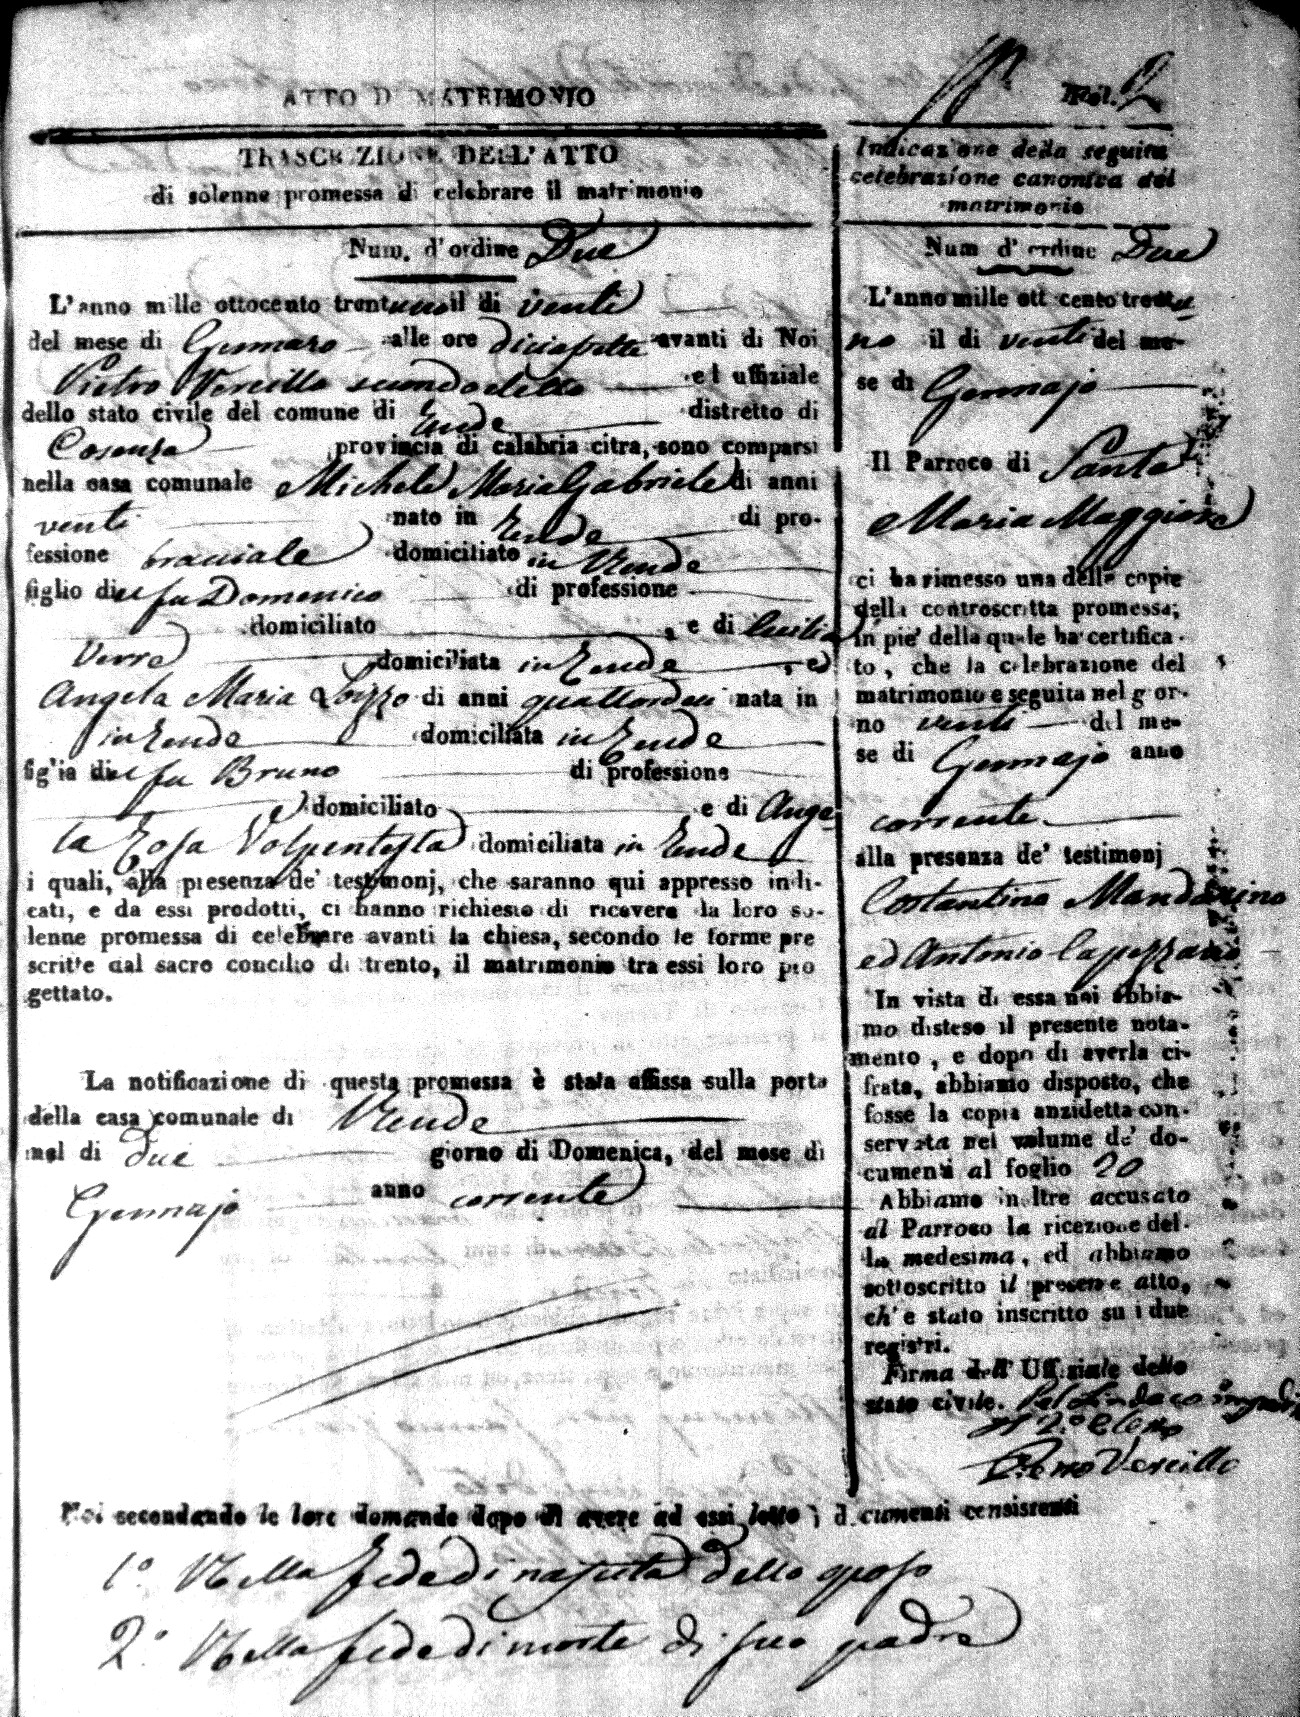 Fol. 2
ATTO DI MATRIMONIO
TRASCRIZIONE DELL'ATTO
di solenne promessa di celebrare il matrimonio
Num. d'ordine Due
L'anno mille ottocento trentuno il di venti
del mese di Gennaro alle ore diciasette avanti di Noi
Pietro Vercillo secondo eletto ed uffiziale
dello stato civile del comune di Rende distretto di
Cosenza provincia di calabria citra, sono comparsi
nella casa comunale Michele Maria Gabriele di anni
venti nato in Rende di pro-
fessione bracciale domiciliato in Rende
figlio del fu Domenico di professione
domiciliato , e di Cecilia
Verre domiciliata in Rende , ed
Angela Maria Loizzo di anni quattordeci nata in
in Rende domiciliata in Rende
figlia del fu Bruno di professione
domiciliato e di Ange
la Rosa Volpentesta domiciliata in Rende
i quali, alla presenza de' testimonj, che saranno qui appresso indi-
cati, e da essi prodotti, ci hanno richiesto di ricevere la loro so-
lenne promessa di celebrare avanti la chiesa, secondo le forme pre
scritte dal sacro concilio di trento, il matrimonio tra essi loro pro
gettato.
La notificazione di questa promessa è stata affissa sulla porta
della casa comunale di Rende
nel di due giorno di Domenica, del mese di
Gennajo anno corrente
Indicazione della seguita
celebrazione canonica del
matrimonio
Num d'ordine Due
L'anno mille ottocento trentu-
no il di venti del me-
se di Gennajo
Il Parroco di Santa
Maria Maggiore
ci ha rimesso una delle copie
della controscritta promessa;
in pie' della quale ha certifica-
to, che la celebrazione del
matrimonio e seguita nel gior-
no venti del me-
se di Gennajo anno
corrente
alla presenza de' testimonj
Costantino Mandarino
ed Antonio Capozzano
In vista di essa noi abbia-
mo disteso il presente nota-
mento, e dopo di averla ci-
frata, abbiamo disposto, che
fosse la copia anzidetta con-
servata nel volume de' do-
cumenti al foglio 20
Abbiamo inoltre accusato
al Parroco la ricezione del-
la medesima, ed abbiamo
sottoscritto il presente atto,
ch'e stato inscritto su i due
registri.
Firma dell' Uffiziale dello
stato civile. Pel Sindaco impedito
Il 2º eletto
Pietro Vercillo
Noi secondando le loro domande dopo di avere ad essi letto i documenti consistenti
1º. Nella fede di nascita dello sposo
2º. Nella fede di morte di suo padre